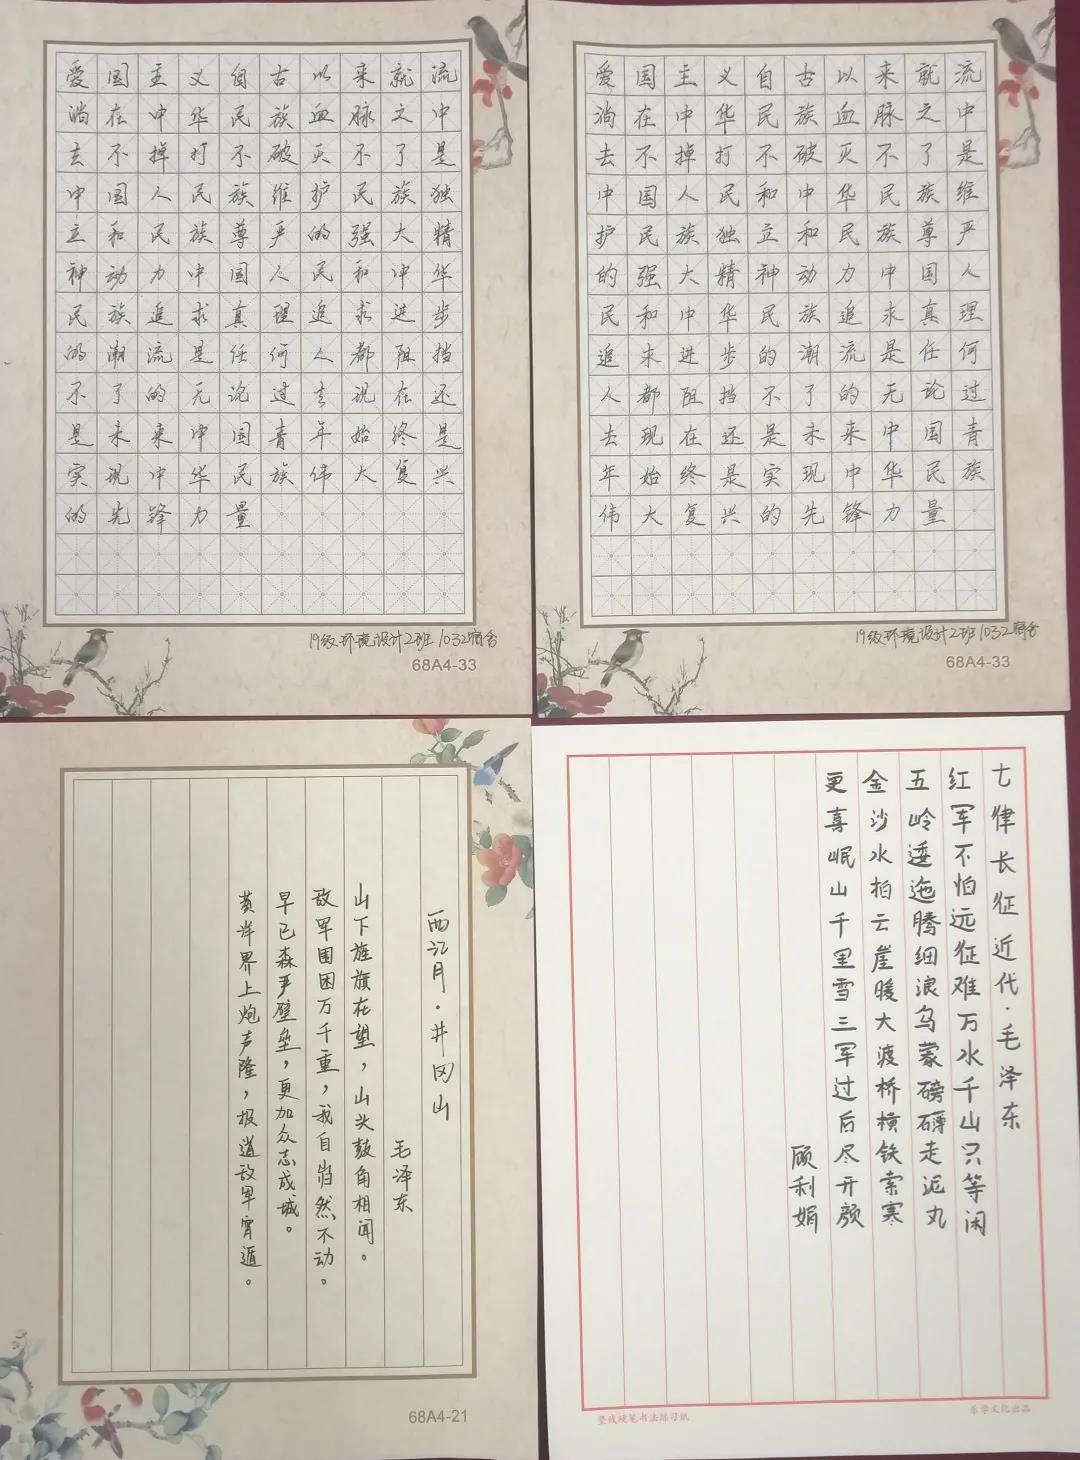 爱国主义自古以来就流
淌在中华民族血脉之中
去不掉打不破灭不了是
中国人民族维护民族独
立和民族尊严的强大精
神动力中国人民和中华
民族追求真理追求进步
的潮流是任何人都阻挡
不了的无论过去现在还
是未来中国青年始终是
实现中华民族伟大复兴
的先锋力量
19级环境设计2班1032宿舍
68A4-33
爱国主义自古以来就流
淌在中华民族血脉之中
去不掉打不破灭不了是
中国人民和中华民族维
护民族独立和民族尊严
的强大精神动力中国人
民和中华民族追求真理
追求进步的潮流是任何
人都阻挡不了的无论过
去现在还是未来中国青
年始终是实现中华民族
伟大复兴的先锋力量
19级环境设计2班1032宿舍
68A4-33
西江月·井冈山
毛泽东
山下旌旗在望，山头鼓角相闻。
敌军围困万千重，我自岿然不动。
早已森严壁垒，更加众志成城。
黄洋界上炮声隆，报道敌军宵遁。
68A4-21
七律长征近代·毛泽东
红军不怕远征难万水千山只等闲
五岭逶迤腾细浪乌蒙磅礴走泥丸
金沙水拍云崖暖大渡桥横铁索寒
更喜岷山千里雪三军过后尽开颜
顾利娟
竖线硬笔书法练习纸
乐学文化出品